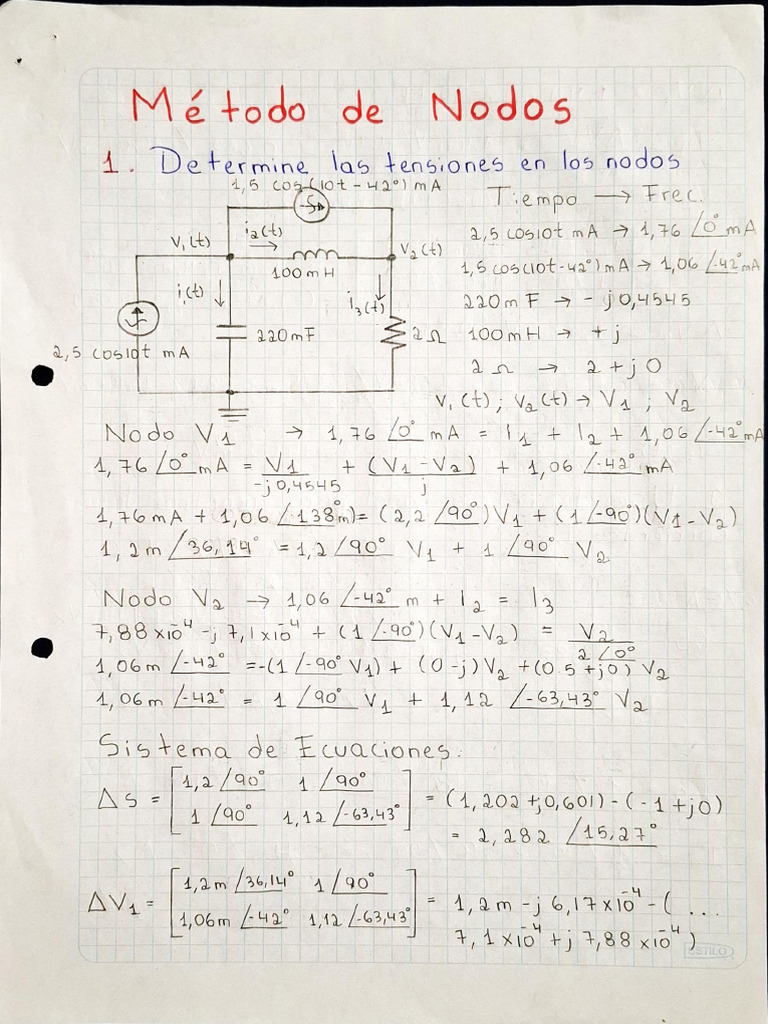 Método de Nodos
1. Determine las tensiones en los nodos
1,5 cos(10t - 42°) mA
Tiempo → Frec.
i₂(t)
V₁(t)
V₂(t)
100mH
i₁(t)
i₃(t)
220mF
2Ω
2,5 cos10t mA
2,5 cos10t mA → 1,76 /0° mA
1,5 cos(10t-42°)mA → 1,06 /-42° mA
220mF → - j0,4545
100mH → +j
2Ω → 2+j0
V₁(t) ; V₂(t) → V₁ ; V₂
Nodo V₁ → 1,76 /0° mA = I₁ + I₂ + 1,06 /-42° mA
1,76 /0° mA = V₁/-j0,4545 + (V₁-V₂)/j + 1,06 /-42° mA
1,76mA + 1,06 /138° m) = (2,2 /90°)V₁ + (1 /-90°)(V₁-V₂)
1,2m /36,14° = 1,2 /90° V₁ + 1 /90° V₂
Nodo V₂ → 1,06 /-42° m + I₂ = I₃
7,88x10⁻⁴ - j 7,1x10⁻⁴ + (1 /-90°)(V₁-V₂) = V₂/2 /0°
1,06m /-42° = -(1 /-90° V₁) + (0-j)V₂ + (0.5+j0) V₂
1,06m /-42° = 1 /90° V₁ + 1,12 /-63,43° V₂
Sistema de Ecuaciones:
ΔS = [1,2 /90° 1 /90°
1 /90° 1,12 /-63,43°] = (1,202+j0,601)-(-1+j0)
= 2,282 /15,27°
ΔV₁ = [1,2m /36,14° 1 /90°
1,06m /-42° 1,12 /-63,43°] = 1,2m - j 6,17x10⁻⁴ - (...
7,1x10⁻⁴ + j 7,88x10⁻⁴)
ESTILO